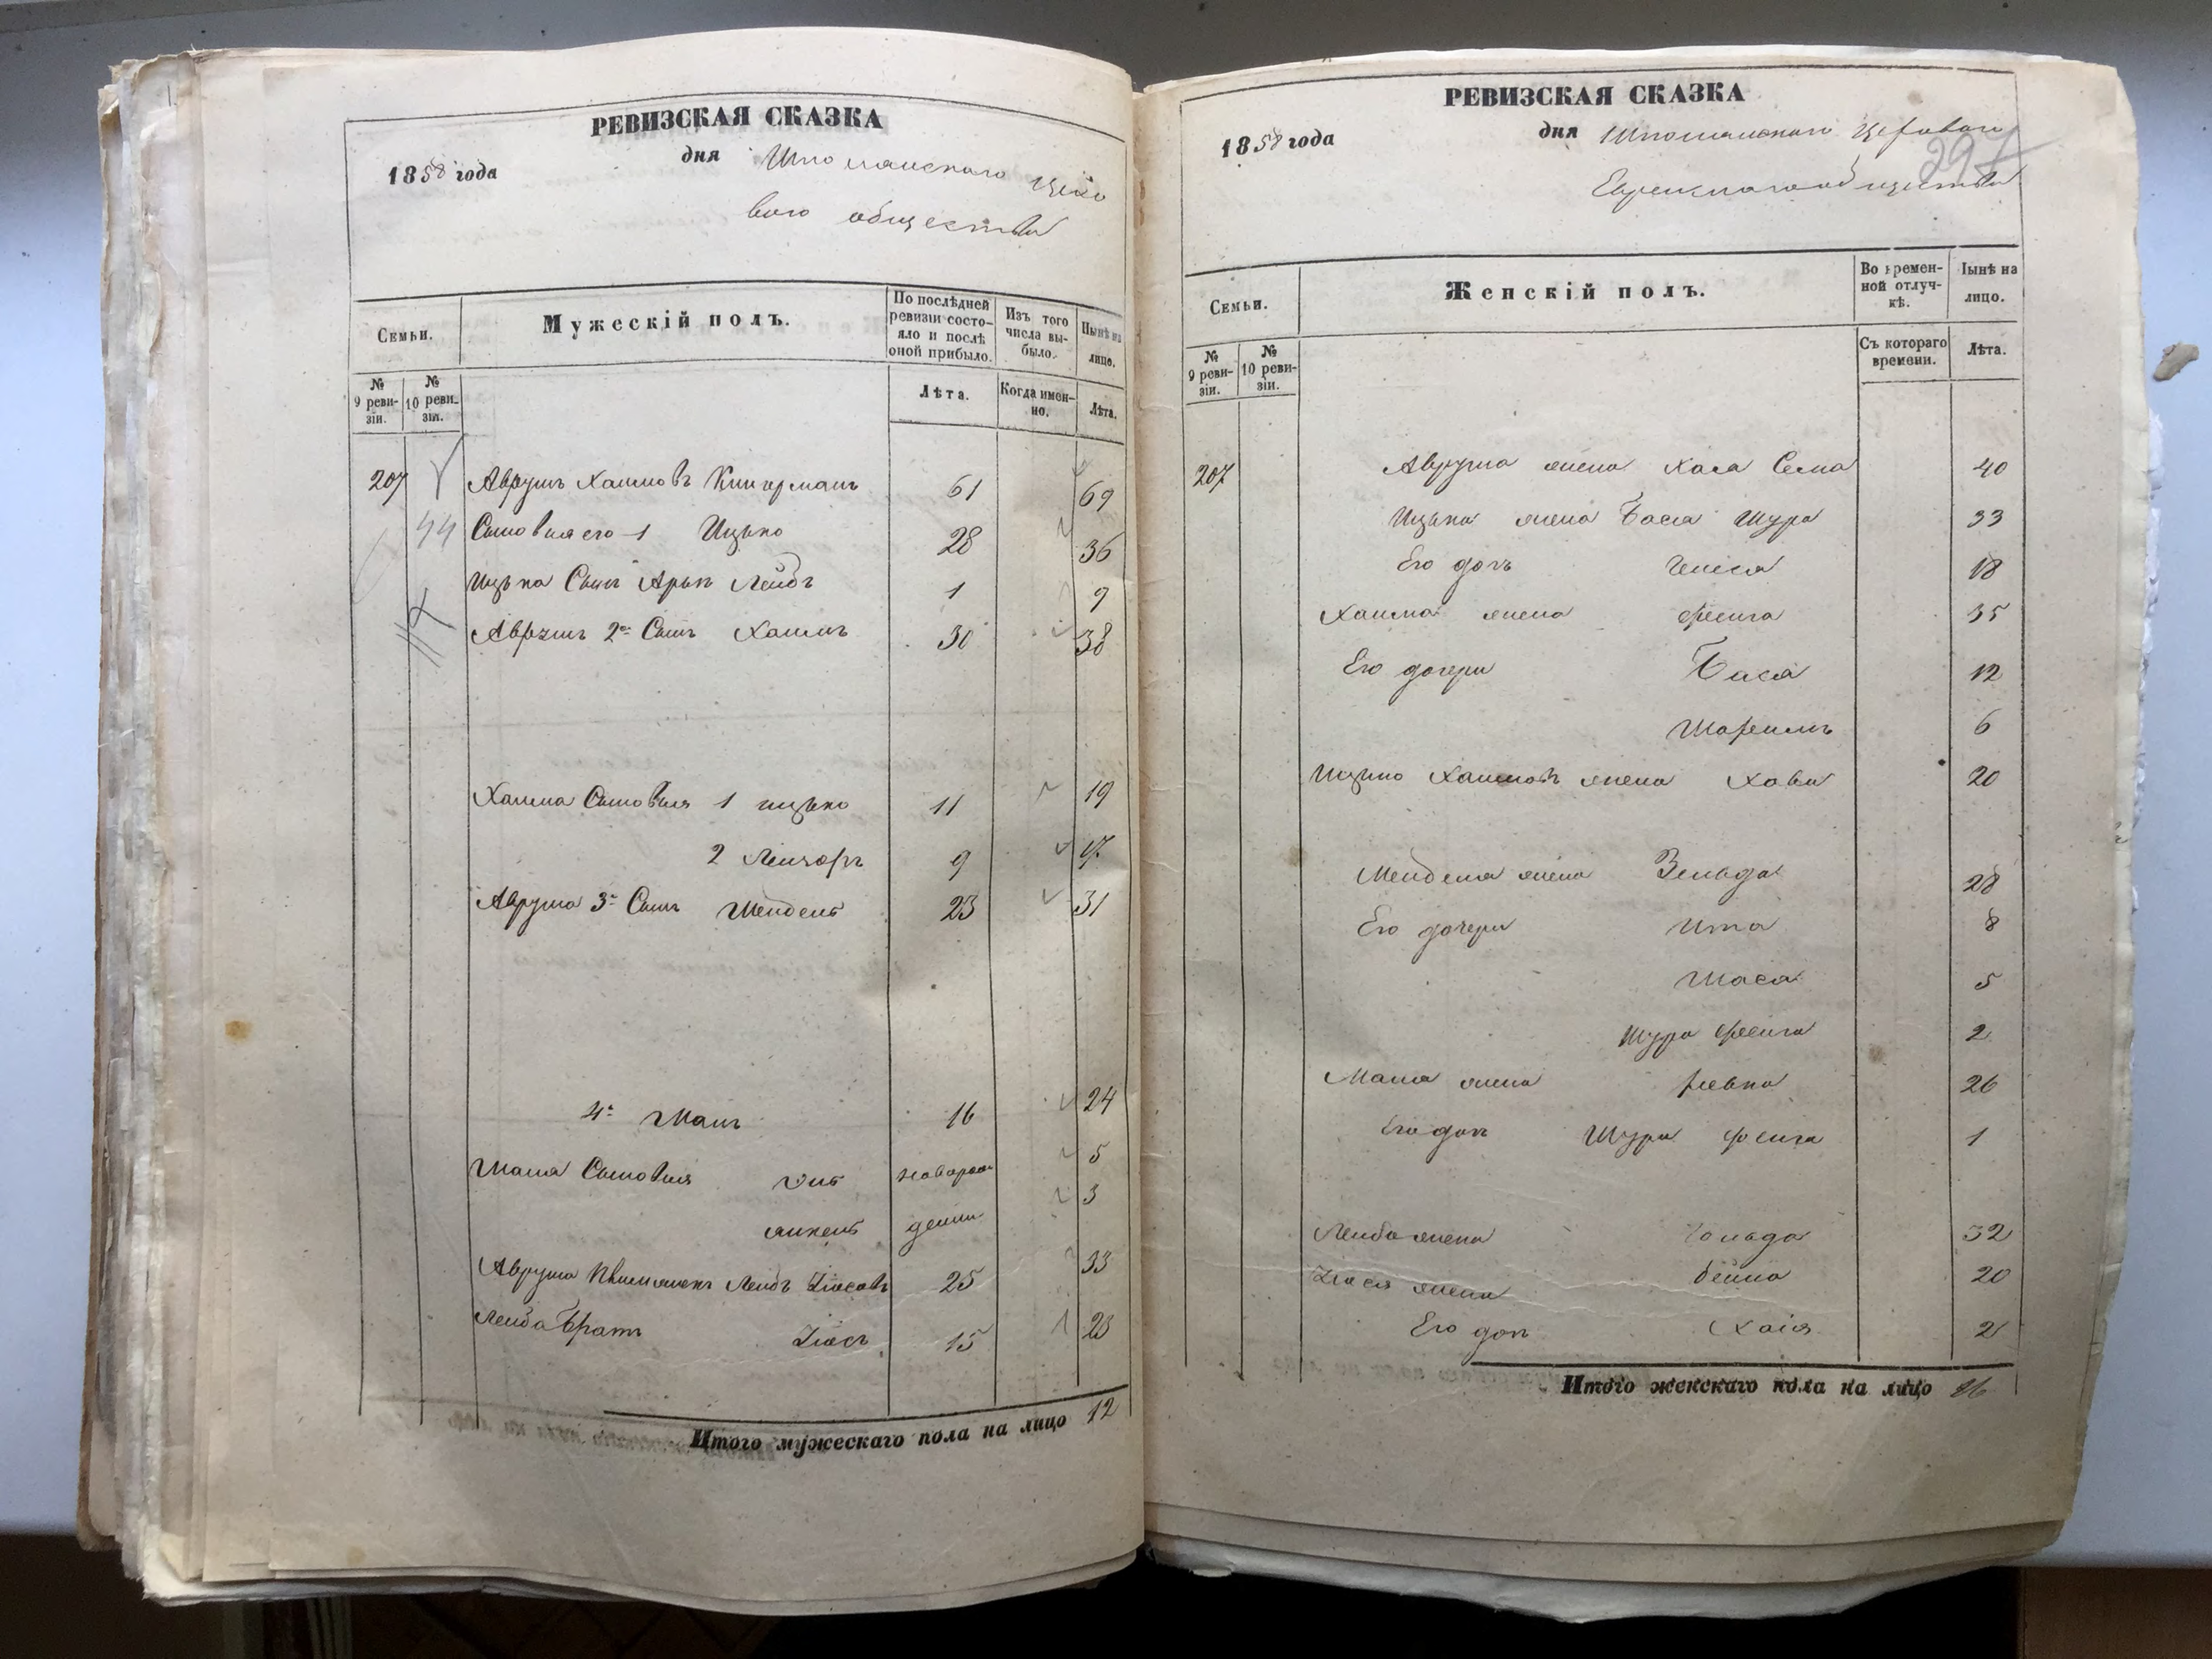 РЕВИЗСКАЯ СКАЗКА
1858 года
дня Шполянского
вого общества
Семьи.
Мужескій полъ.
По послѣдней ревизіи состояло и послѣ оной прибыло.
Изъ того числа выбыло.
Нынѣ на лице.
№ 9 ревизіи.
№ 10 ревизіи.
Лѣта.
Когда именно.
Лѣта.
207 Аврумъ Хаимовъ 61 69
44 Сыновья его 1 Ицько 28 36
Ицька Сынъ Арья Лейбъ 1 9
Аврумъ 2й Сынъ Хаимъ 30 38
Хаима Сыновья 1 ицько 11 19
2 9 17
Аврума 3й Сынъ Мендель 23 31
4й 16 24
Сыновья новорож 5
янкель денни 3
Аврума Племянникъ Лейбъ Зіосовъ 25 33
Лейба Братъ Зіось 15 23
Итого мужескаго пола на лицо 12
РЕВИЗСКАЯ СКАЗКА
1858 года
дня Шполянского
297
Еврейского общества
Семьи.
Женскій полъ.
Во временной отлучкѣ.
Нынѣ на лицо.
№ 9 ревизіи.
№ 10 ревизіи.
Съ котораго времени.
Лѣта.
207 Аврума жена Хая Сема 40
Ицька жена Бася Шура 33
Его дочь 18
Хаима жена Фейга 35
Его дочери Бася 12
6
Ицько Хаимовъ жена Хава 20
Менделя жена Зельда 28
Его дочери Ита 8
5
Шура Фейга 2
жена Ривка 26
Его доч Шура Фейга 1
Лейба жена Гольда 32
Зіося жена бейла 20
Его доч Хаія 2
Итого женскаго пола на лицо 16